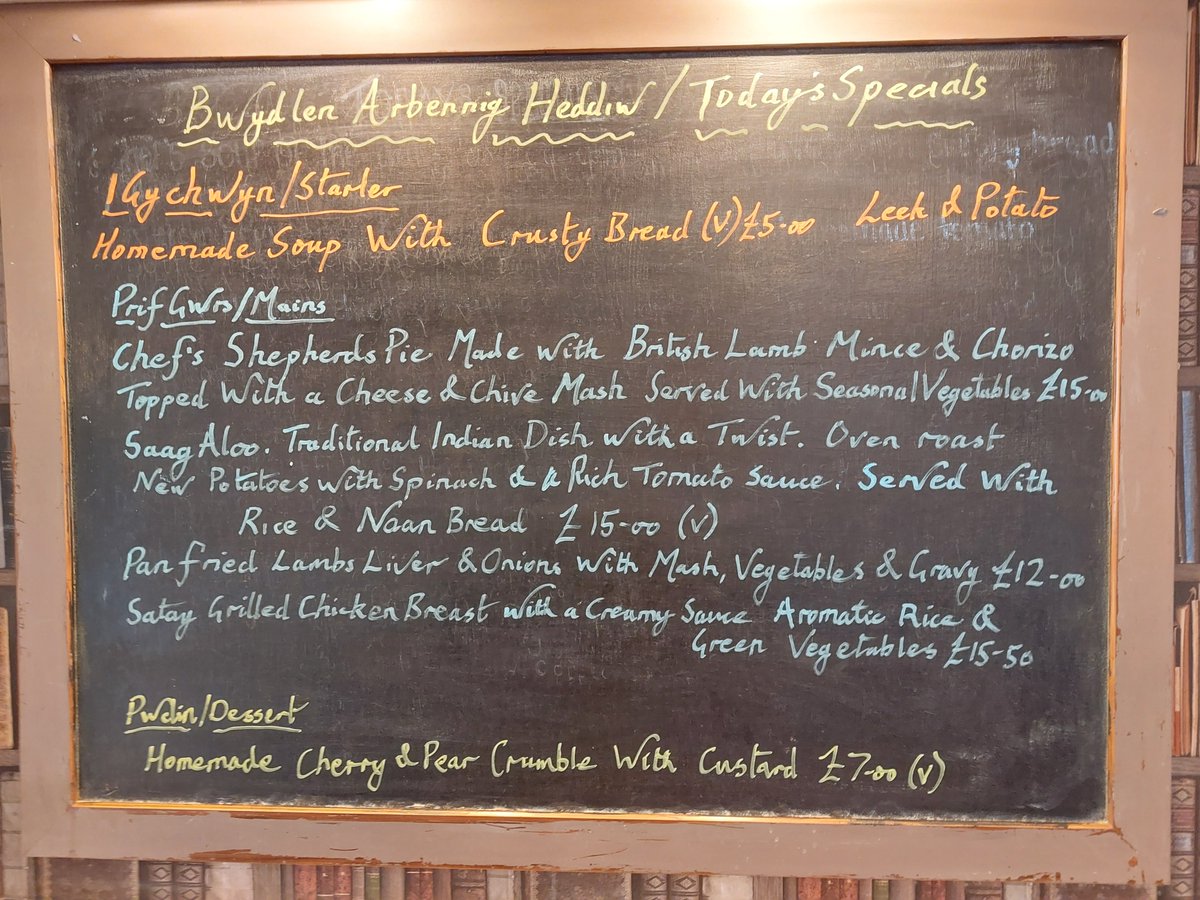 Bwydlen Arbennig Heddiw / Today's Specials
I Gychwyn/Starter
Homemade Soup With Crusty Bread (V) £5-00 Leek & Potato
Prif Gwrs/Mains
Chef's Shepherds Pie Made with British Lamb Mince & Chorizo
Topped With a Cheese & Chive Mash Served With Seasonal Vegetables £15-00
Saag Aloo. Traditional Indian Dish with a Twist. Oven roast
New Potatoes with Spinach & a Rich Tomato Sauce. Served With
Rice & Naan Bread £15-00 (V)
Pan fried Lambs Liver & Onions With Mash, Vegetables & Gravy £12-00
Satay Grilled Chicken Breast with a Creamy Sauce Aromatic Rice &
Green Vegetables £15-50
Pwdin/Dessert
Homemade Cherry & Pear Crumble With Custard £7-00 (V)